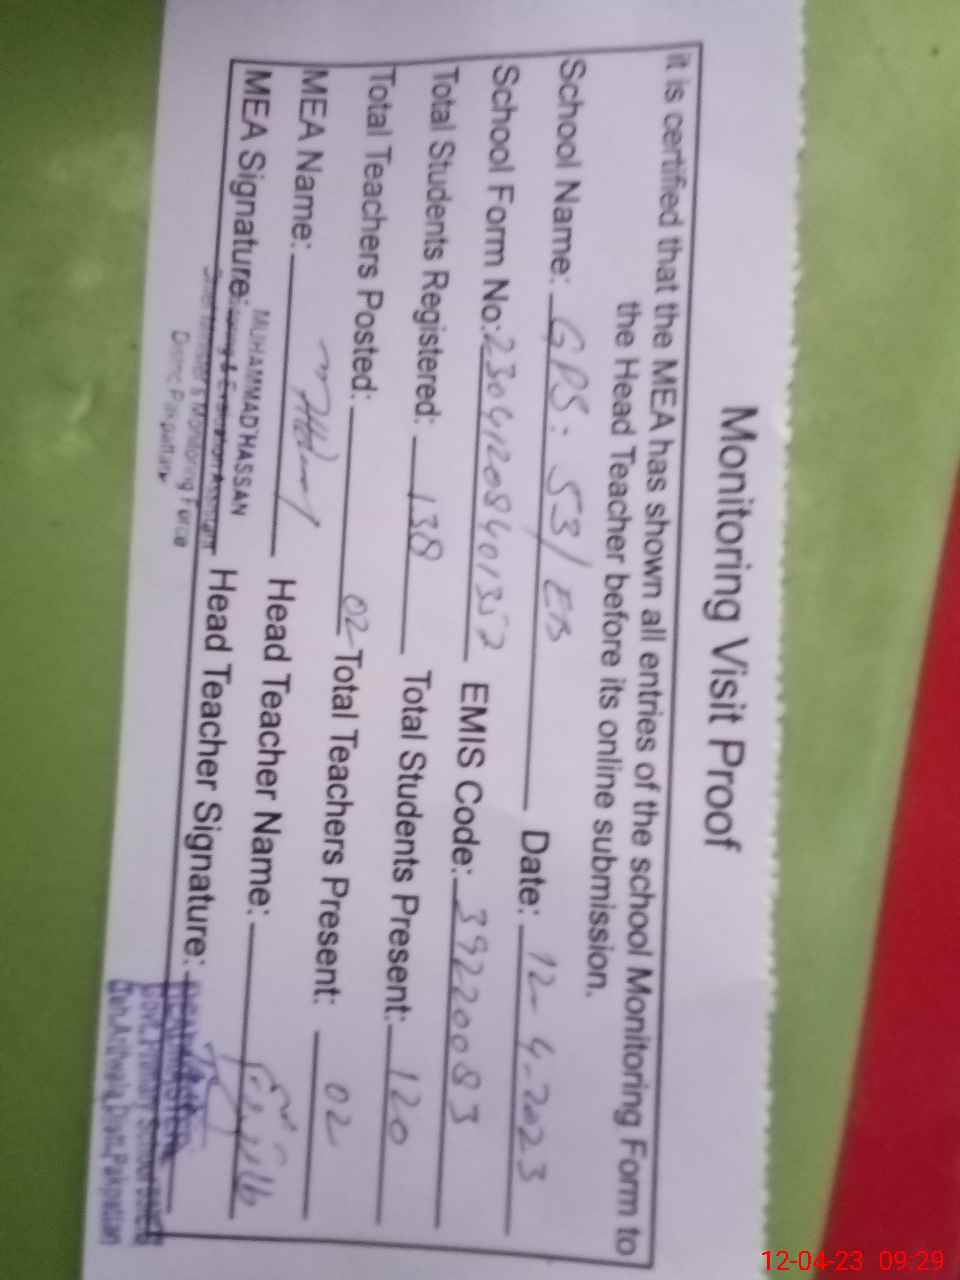 Monitoring Visit Proof
it is certified that the MEA has shown all entries of the school Monitoring Form to
the Head Teacher before its online submission.
School Name: GPS: 53/EB Date: 12-4-2023
School Form No: EMIS Code: 39220083
Total Students Registered: 138 Total Students Present: 120
Total Teachers Posted: 02 Total Teachers Present: 02
MEA Name: Head Teacher Name:
MEA Signature: Head Teacher Signature:
MUHAMMAD HASSAN
Monitoring & Evaluation Assistant
Chief Minister's Monitoring Force
District Pakpattan
Govt. Primary School
Teh. Arifwala Distt. Pakpattan
12-04-23 09:29